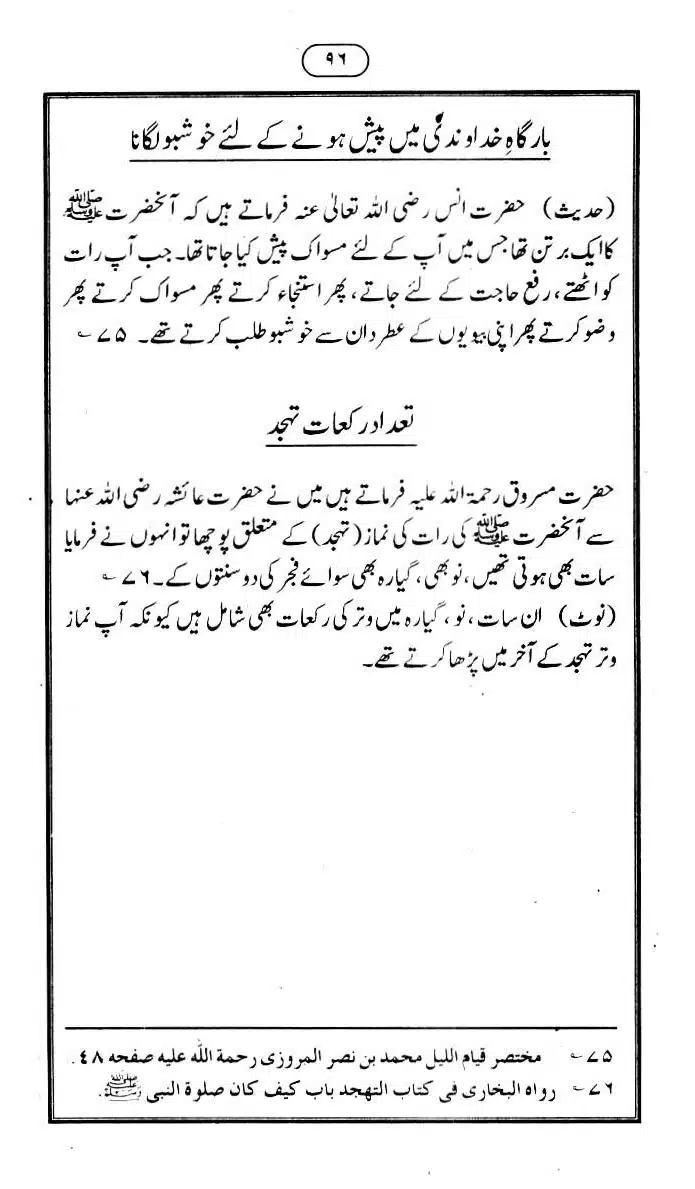 ۹۶
بارگاہِ خداوندی میں پیش ہونے کے لئے خوشبو لگانا
(حدیث) حضرت انس رضی اللہ تعالیٰ عنہ فرماتے ہیں کہ آنحضرت ﷺ
کا ایک برتن تھا جس میں آپ کے لئے مسواک پیش کیا جاتا تھا۔ جب آپ رات
کو اٹھتے، رفع حاجت کے لئے جاتے، پھر استنجاء کرتے پھر مسواک کرتے پھر
وضو کرتے پھر اپنی بیویوں کے عطردان سے خوشبو طلب کرتے تھے۔ ۷۵؎
تعداد رکعات تہجد
حضرت مسروق رحمۃ اللہ علیہ فرماتے ہیں میں نے حضرت عائشہ رضی اللہ عنہا
سے آنحضرت ﷺ کی رات کی نماز (تہجد) کے متعلق پوچھا تو انہوں نے فرمایا
سات بھی ہوتی تھیں، نو بھی، گیارہ بھی سوائے فجر کی دو سنتوں کے۔ ۷۶؎
(نوٹ) ان سات، نو، گیارہ میں وتر کی رکعات بھی شامل ہیں کیونکہ آپ نماز
وتر تہجد کے آخر میں پڑھا کرتے تھے۔
۷۵؎ مختصر قیام اللیل محمد بن نصر المروزی رحمة اللّٰہ علیہ صفحہ ۴۸.
۷۶؎ رواہ البخاری فی کتاب التہجد باب کیف کان صلوة النبی ﷺ.